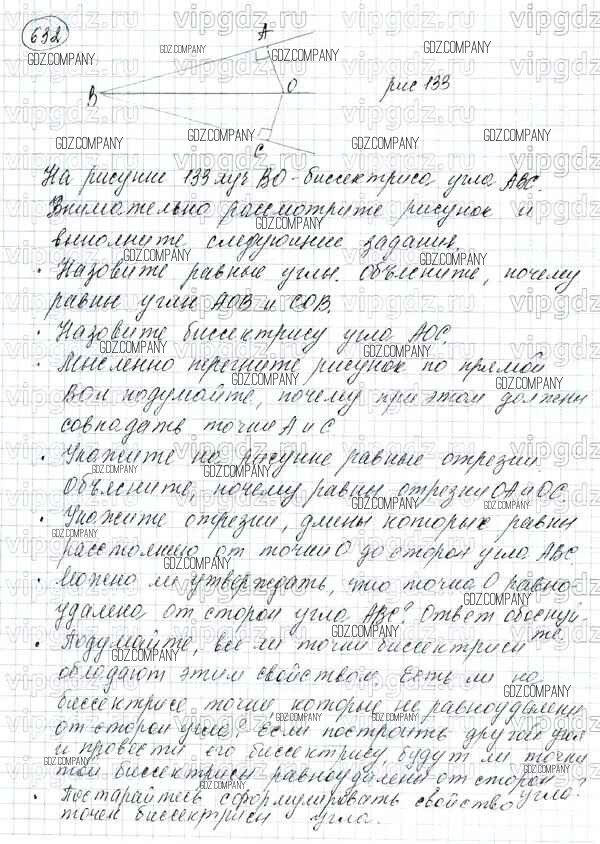 632
A
B
O
C
рис 133
На рисунке 133 луч BO - биссектриса угла ABC.
Внимательно рассмотрите рисунок и
выполните следующие задания.
· Назовите равные углы. Объясните, почему
равны углы AOB и COB.
· Назовите биссектрису угла AOC.
· Мысленно перегните рисунок по прямой
BO и подумайте, почему при этом должны
совпадать точки A и C
· Укажите на рисунке равные отрезки.
Объясните, почему равны отрезки OA и OC.
· Укажите отрезки, длины которые равны
расстоянию от точки O до сторон угла ABC.
· Можно ли утверждать, что точка O равно-
удалена от сторон угла ABC? Ответ обоснуй-
те.
· Подумайте, все ли точки биссектрисы
обладают этим свойством. Есть ли на
биссектрисе точки которые не равноудалены
от сторон угла? Если построить другой угол
и провести его биссектрису, будут ли точки
той биссектрисы равноудалены от сторон
угла?
· Постарайтесь сформулировать свойство
точек биссектрисы угла.
GDZ.COMPANY
vipgdz.ru